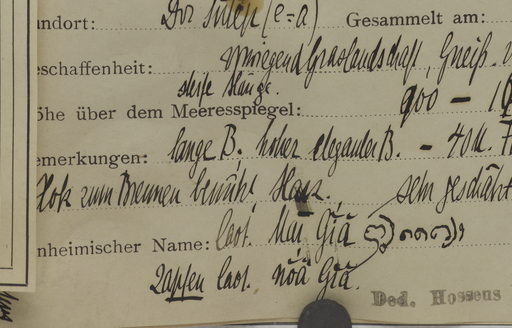 andort: Dor Sulep (e=a) Gesammelt am:
eschaffenheit: vorwiegend Graslandschaft, Gneiß
steile Hänge.
öhe über dem Meeresspiegel: 900 — 1
emerkungen: lange B. hoher eleganter B. — 40 M.
zum Brennen benützt, Harz, sehr geschätzt
nheimischer Name: laot. Mai Giă
Zapfen laot. nŏă Giă.
Ded. Hosseus